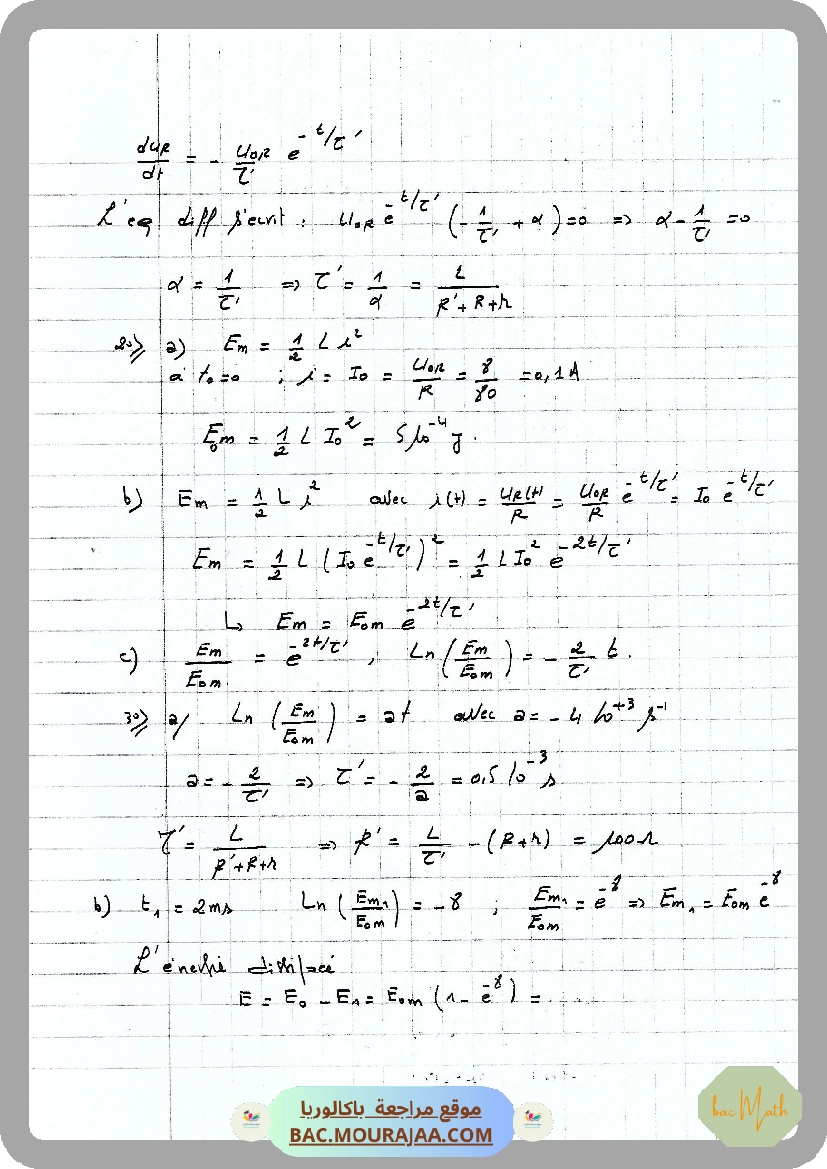 du_R/dt = - U_0R/τ' e^{-t/τ'}
L'eq diff s'ecrit : U_0R e^{-t/τ'} (-1/τ' + α) = 0 => α - 1/τ' = 0
α = 1/τ' => τ' = 1/α = L/(R'+R+r)
2°) a) Em = 1/2 L i²
à t₀=0 ; i = I₀ = U_0R/R = 8/80 = 0,1A
E₀m = 1/2 L I₀² = 5 10⁻⁴ J.
b) Em = 1/2 L i² avec i(t) = U_R(t)/R = U_0R/R e^{-t/τ'} = I₀ e^{-t/τ'}
Em = 1/2 L (I₀ e^{-t/τ'})² = 1/2 L I₀² e^{-2t/τ'}
↳ Em = E₀m e^{-2t/τ'}
c) Em/E₀m = e^{-2t/τ'} ; Ln(Em/E₀m) = -2/τ' t.
3°) a/ Ln(Em/E₀m) = at avec a = -4 10⁺³ s⁻¹
a = -2/τ' => τ' = -2/a = 0,5 10⁻³ s
τ' = L/(R'+R+r) => R' = L/τ' - (R+r) = 100Ω
b) t₁ = 2ms Ln(Em₁/E₀m) = -8 ; Em₁/E₀m = e⁻⁸ => Em₁ = E₀m e⁻⁸
L'énergie dissipée
E = E₀ - E₁ = E₀m (1 - e⁻⁸) = ......
موقع مراجعة باكالوريا
BAC.MOURAJAA.COM
bac Math